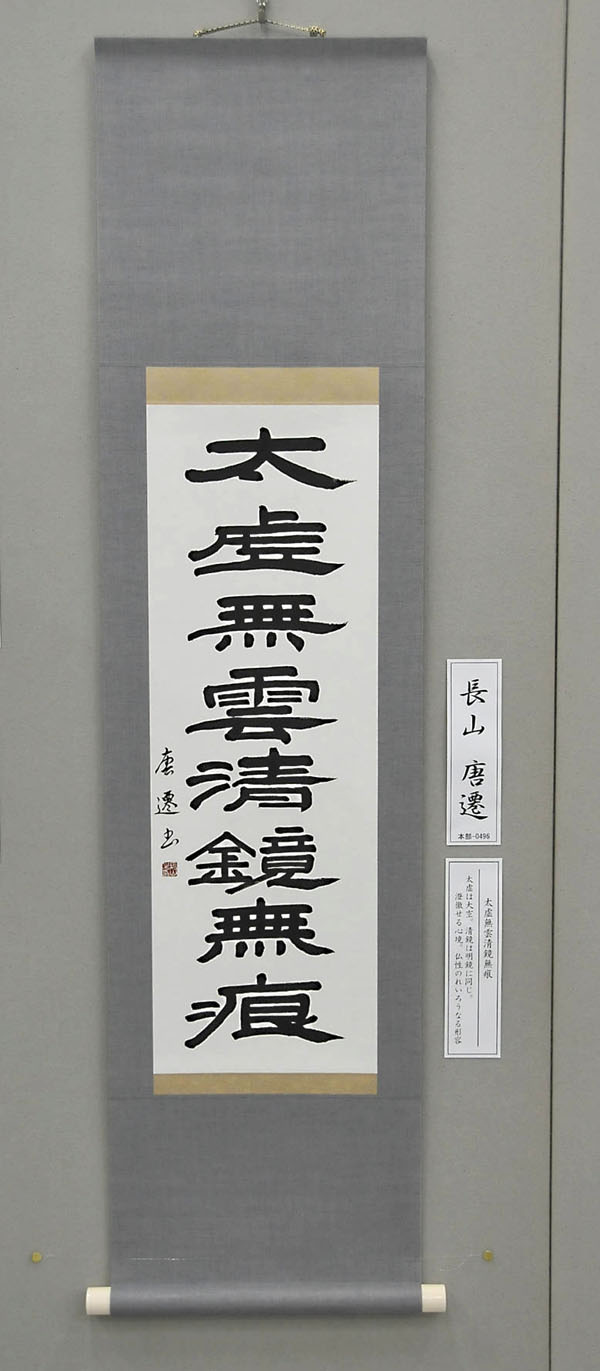 太虚無雲清鏡無痕
唐遷書
長山 唐遷
本部-0496
太虚無雲清鏡無痕
太虚は大空。清鏡は明鏡に同じ。
澄徹せる心境。仏性のれいろうなる形容